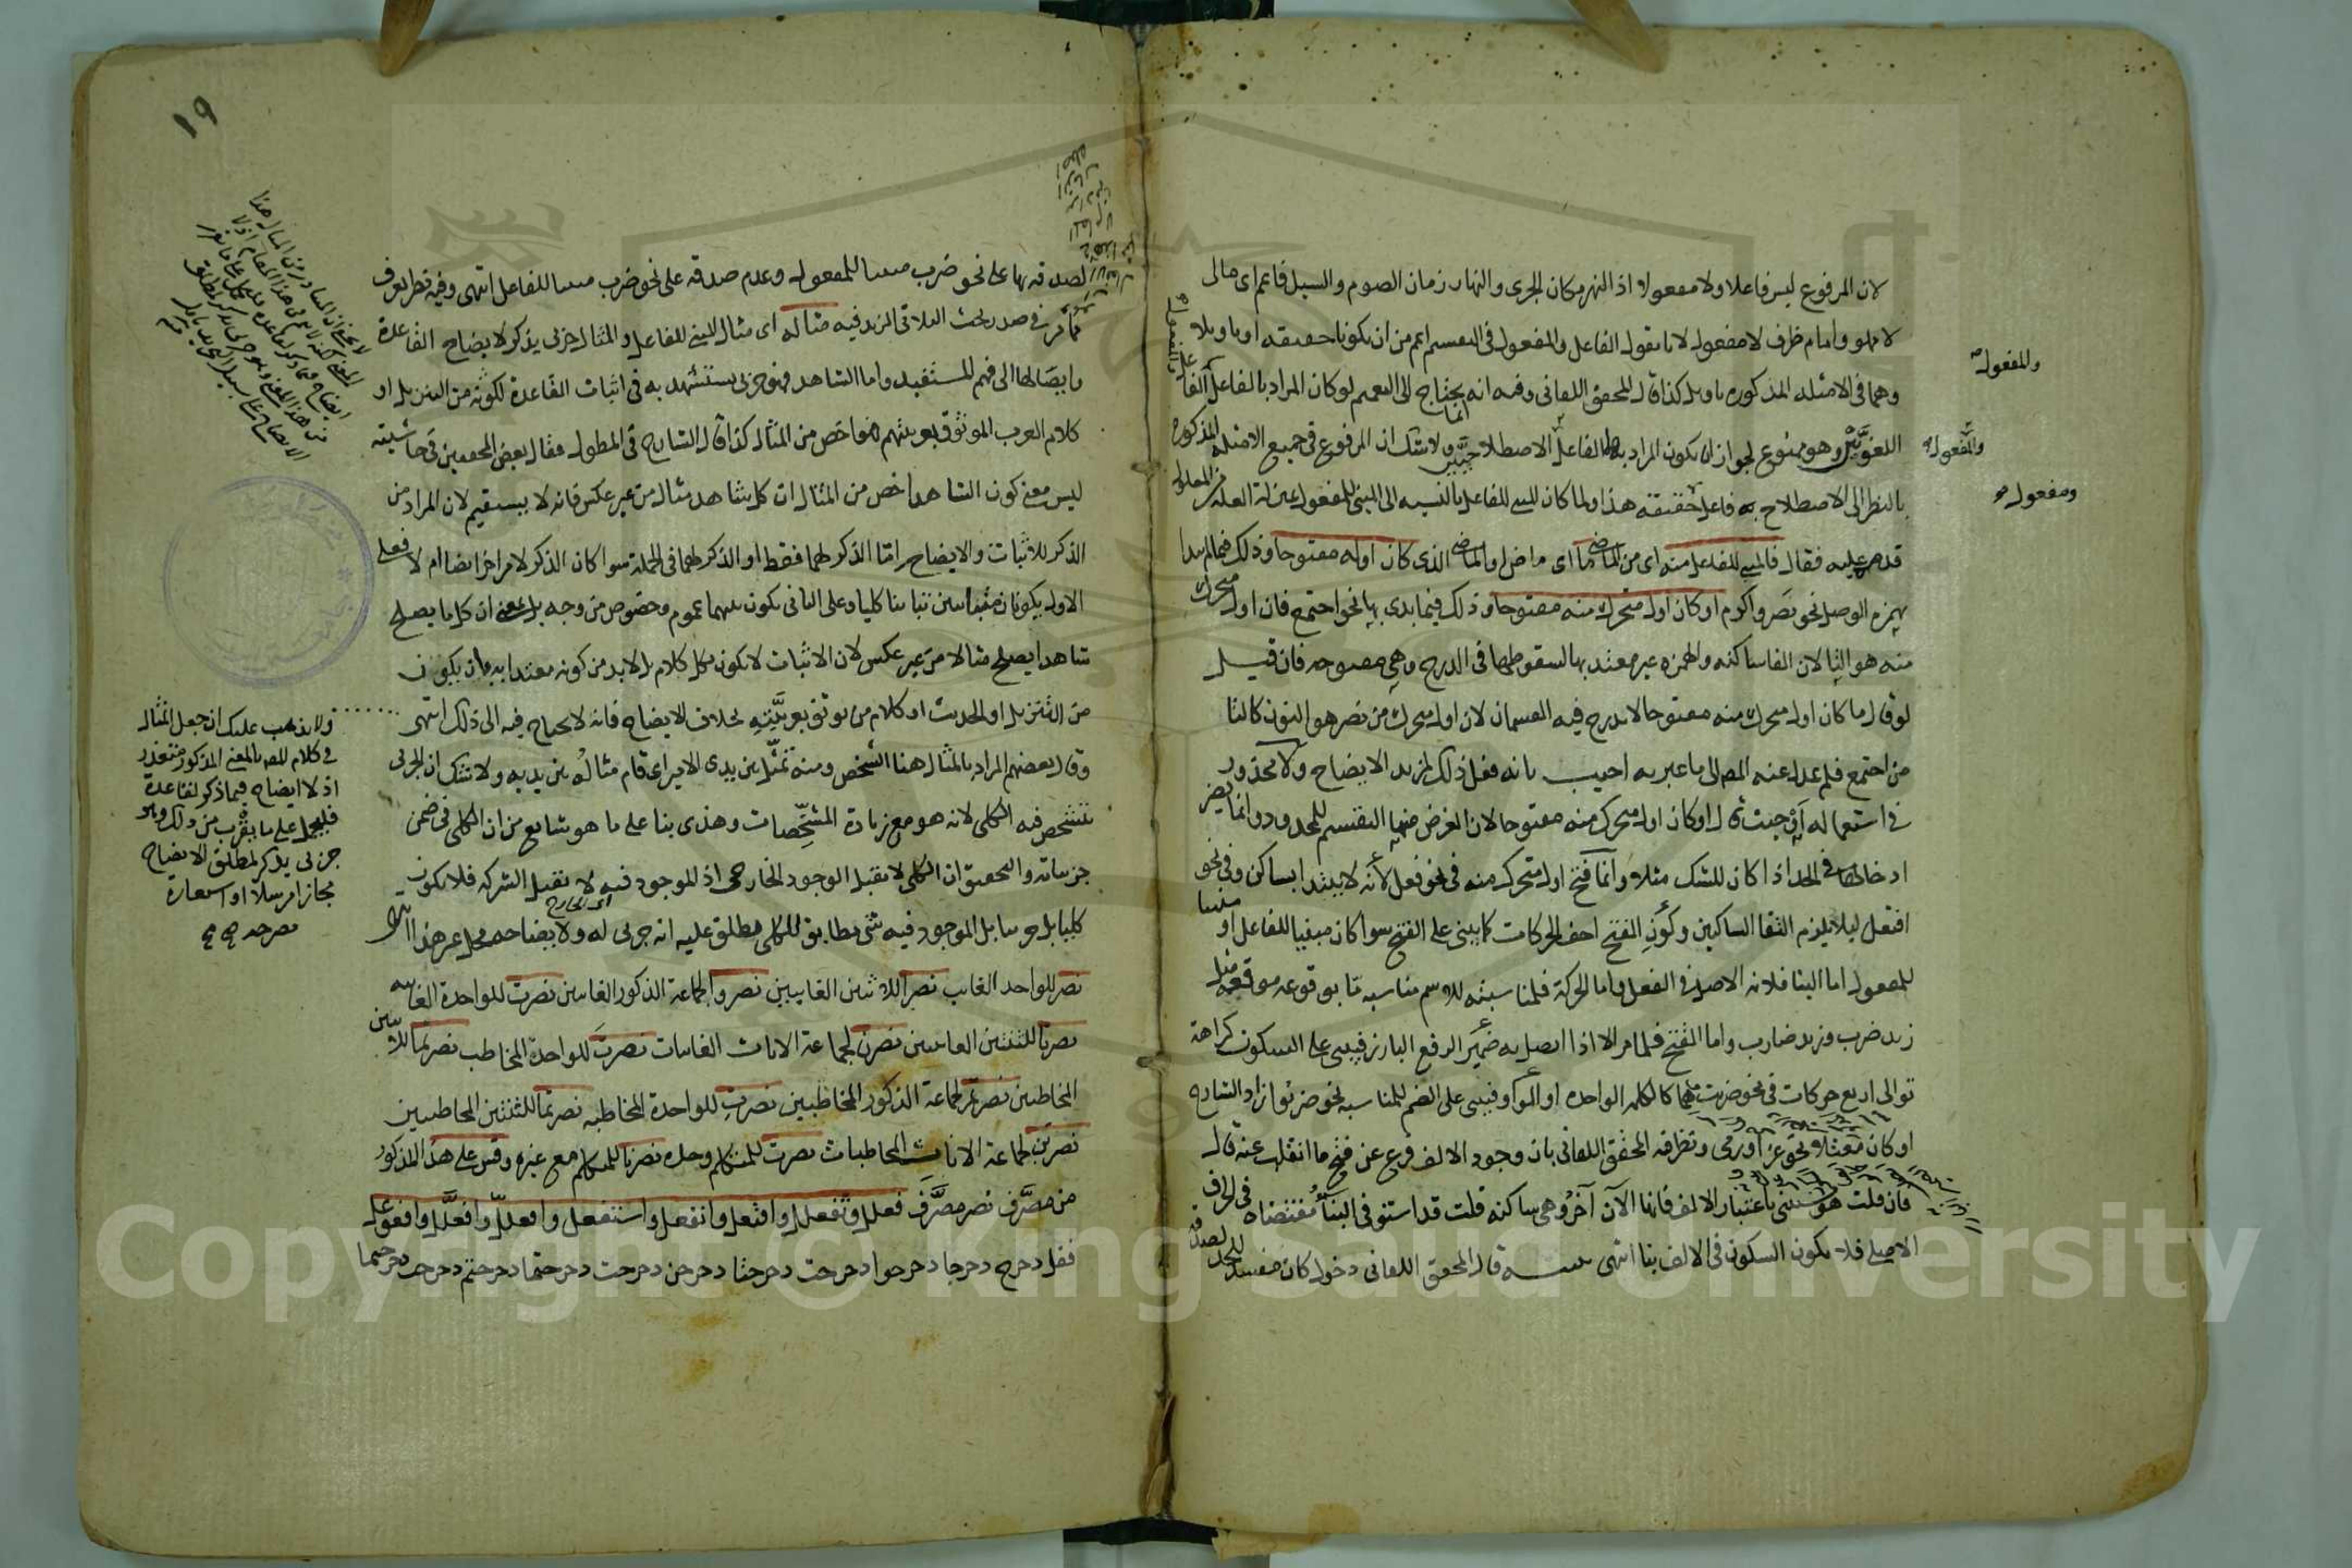 لان المرفوع ليس فاعلا ولا مفعولا اذ النهر مكان الجرى والنهار زمان الصوم والسيل فاعم اى مالى
لا مملو وامام ظرف لا مفعول لانا نقول الفاعل والمفعول فى التقسيم اعم من ان يكونا حقيقة او تاويلا
وهما فى الامثلة المذكورة تاويل كذا قال المحقق اللقانى وفيه انه يحتاج الى التعميم لو كان المراد بالفاعل
والمفعول
اللغويين وهو ممنوع لجواز ان يكون المراد بالفاعل الاصطلاحيين ولا شك ان المرفوع فى جميع الامثلة المذكورة
والمفعول
بالنظر الى الاصطلاح فاعل حقيقة هذا ولما كان المبنى للفاعل بالنسبة الى المبنى للمفعول بمنزلة العلة من المعلول
ومفعول
قدمه عليه فقال فالمبنى للفاعل منه اى من الماضى ما اى ماض او الماضى الذى كان اوله مفتوحا وذلك فيما لم يبدا
بهمزة الوصل نحو نصر واكرم او كان اول متحرك منه مفتوحا وذلك فيما بدى بها نحو اجتمع فان اول متحرك
منه هو التا لان الفا ساكنة والهمزة غير معتد بها لسقوطها فى الدرج وهى مفتوحة فان قيل
لو قال ما كان اول متحرك منه مفتوحا لاندرج فيه القسمان لان اول متحرك من نصر هو النون كالتا
من اجتمع فلم عدل عنه المص الى ما عبر به اجيب بانه فعل ذلك لمزيد الايضاح ولا محذور
فى استعماله او حيث قال او كان اول متحرك منه مفتوحا لان الغرض منها التقسيم للمحدود وانما يضر
ادخالها فى الحد اذا كان للشك مثلا وانما فتح اول متحرك منه فى نحو فعل لأنه لا يبتدا بساكن وفى نحو
افتعل ليلا يلزم التقا الساكنين وكون الفتح اخف الحركات كما يبنى على الفتح سوا كان مبنيا للفاعل او مبنيا
للمفعول اما البنا فلانه الاصل فى الفعل واما الحركة فلمناسبته للاسم مناسبة ما بوقوعه موقعه مثل
زيد ضرب وزيد ضارب واما الفتح فلما مر الا اذا اتصل به ضمير الرفع البارز فيبنى على السكون كراهة
توالى اربع حركات فى نحو ضربت مما كالكلمة الواحدة او الواو فيبنى على الضم للمناسبة نحو ضربوا زاد الشارح
او كان معتلا نحو غزا ورمى ونظر فيه المحقق اللقانى بان وجود الالف فرع عن فتح ما انقلبت عنه قال
فان قلت هو مبنى باعتبار الالف فانها الآن آخر وهى ساكنة قلت قد استوفى البنا مقتضاه فى الحرف
الاصلى فلا يكون السكون فى الالف بنا انتهى تنبيه قال المحقق اللقانى دخول كان مفسد للحد لصدقه
١٩
لصدقه بها على نحو ضرب مبنيا للمفعول وعدم صدقه على نحو ضرب مبنيا للفاعل انتهى وفيه نظر يعرف
مما مر فى صدر بحث الثلاثى المزيد فيه مثاله اى مثال المبنى للفاعل والمثال جزئى يذكر لايضاح القاعدة
وايصالها الى فهم المستفيد واما الشاهد فهو جزئى يستشهد به فى اثبات القاعدة لكونه من التنزيل او
كلام العرب الموثوق بعربيتهم فهو اخص من المثال كذا قال الشارح فى المطول فقال بعض المحققين فى حاشيته
ليس معنى كون الشاهد اخص من المثال ان كل شاهد مثال من غير عكس فانه لا يستقيم لان المراد من
الذكر للاثبات والايضاح اما الذكر لهما فقط او الذكر لهما فى الجملة سوا كان الذكر لامر اخر ايضا ام لا فعلى
الاول يكونان متباينين تباينا كليا وعلى الثانى يكون بينهما عموم وخصوص من وجه بل معنى ان كل ما يصلح
شاهدا يصلح مثالا من غير عكس لان الاثبات لا يكون بكل كلام بل لا بد من كونه معتدا به بان يكون
من التنزيل او الحديث او كلام من يوثق بعربيته بخلاف الايضاح فانه لا يحتاج فيه الى ذلك انتهى
وقال بعضهم المراد بالمثال هنا الشخص ومنه تمثل بين يدى الامير اى قام مثاله بين يديه ولا شك ان الجزئى
يتشخص فيه الكلى لانه هو مع زيادة المشخصات وهذى بنا على ما هو شايع من ان الكلى فى ضمن
جزئياته والتحقيق ان الكلى لا يقبل الوجود الخارجى اذ الموجود فيه لا يقبل الشركة فلا يكون
اى الخارج
كليا بل جزئيا بل الموجود فيه شى مطابق للكلى يطلق عليه انه جزئى له ولايضاحه محل غير هذا
نصر للواحد الغايب نصرا للاثنين الغايبين نصروا لجماعة الذكور الغايبين نصرت للواحدة الغايبة
نصرتا للثنتين الغايبتين نصرن لجماعة الاناث الغايبات نصرت للواحد المخاطب نصرتما للاثنين
المخاطبين نصرتم لجماعة الذكور المخاطبين نصرت للواحدة المخاطبة نصرتما للثنتين المخاطبتين
نصرتن لجماعة الاناث المخاطبات نصرت للمتكلم وحده نصرنا للمتكلم مع غيره وقس على هذا المذكور
من مصرف نصر مصرف فعلل وتفعلل وافتعل وانفعل واستفعل وافعلل وافعلل وافعوعل
فقل دحرج دحرجا دحرجوا دحرجت دحرجتا دحرجن دحرجت دحرجتما دحرجتم دحرجت دحرجتما
ولا يذهب عليك ان جعل المثال
فى كلام المص بالمعنى المذكور متعذر
اذ لا ايضاح فيما ذكر لقاعدة
فليحمل على ما يقرب من ذلك وهو
جزئى يذكر لمطلق الايضاح
مجازا مرسلا او استعارة
مصرحه
Copyright © King Saud University